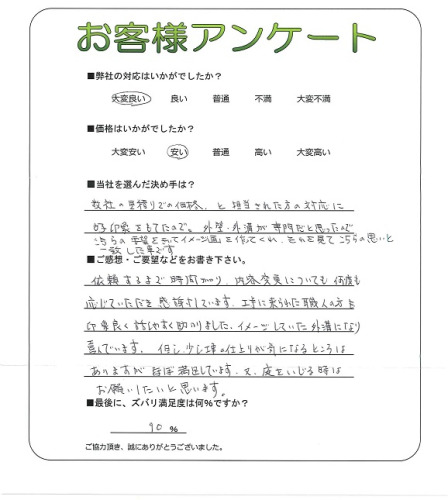 お客様アンケート
■弊社の対応はいかがでしたか？
大変良い 良い 普通 不満 大変不満
■価格はいかがでしたか？
大変安い 安い 普通 高い 大変高い
■当社を選んだ決め手は？
数社の見積りでの価格、と担当された方の対応に
好印象をもてたので。外壁・外溝が専門だと思ったので
こちらの希望をきいてイメージ画を作ってくれ、それを見てこちらの思いと
一致した事です
■ご感想・ご要望などをお書き下さい。
依頼するまで時間かかり、内容変更についても何度も
応じていただき感謝しています。工事に来られた職人の方も
印象良く話やすく助かりました。イメージしていた外溝になり
喜んでいます。但し、少し壊の仕上りが気になるところは
ありますがほぼ満足しています。又、庭をいじる時は
お願いしたいと思います。
■最後に、ズバリ満足度は何％ですか？
90 %
ご協力頂き、誠にありがとうございました。